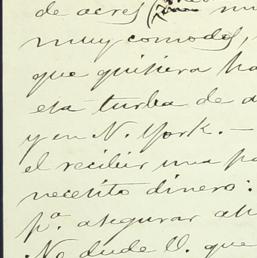 de acres
muy comodos,
que quisiera ha
esa turba de a
y en N. York. —
el recibir una pa
necesito dinero:
pª. asegurar al
No dude V. que